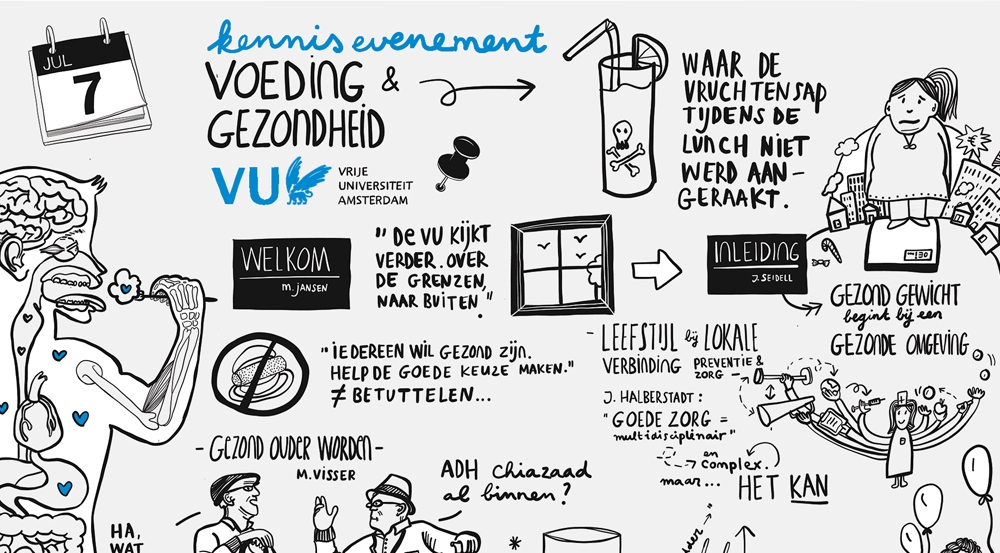 JUL
7
kennisevenement
VOEDING &
GEZONDHEID
VU
VRIJE
UNIVERSITEIT
AMSTERDAM
WAAR DE
VRUCHTENSAP
TIJDENS DE
LUNCH NIET
WERD AAN-
GERAAKT.
WELKOM
M. JANSEN
"DE VU KIJKT
VERDER. OVER
DE GRENZEN,
NAAR BUITEN."
INLEIDING
J. SEIDELL
130
GEZOND GEWICHT
begint bij een
GEZONDE OMGEVING
"IEDEREEN WIL GEZOND ZIJN.
HELP DE GOEDE KEUZE MAKEN."
≠ BETUTTELEN...
- LEEFSTIJL bij LOKALE
VERBINDING PREVENTIE &
ZORG -
J. HALBERSTADT:
"GOEDE ZORG =
multidisciplinair"
en
complex.
maar... HET KAN
- GEZOND OUDER WORDEN -
M. VISSER
ADH chiazaad
al binnen?
HA,
WAT
*